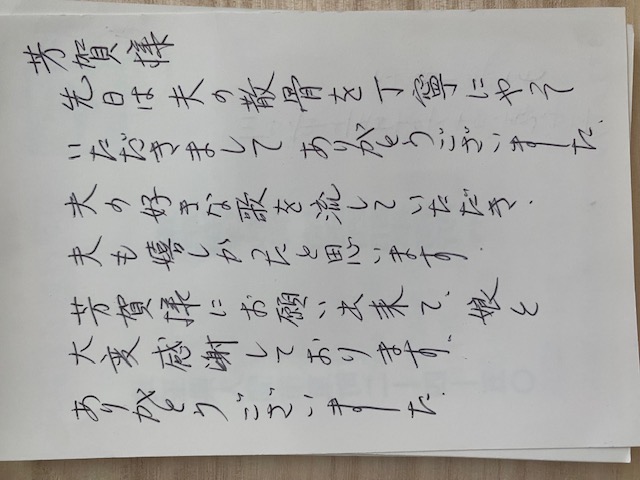 芳賀様
先日は夫の散骨を丁寧にやって
いただきましてありがとうございました.
夫の好きな歌を流していただき.
夫も嬉しかったと思います.
芳賀様にお願い出来て、娘と
大変感謝しております.
ありがとうございました.